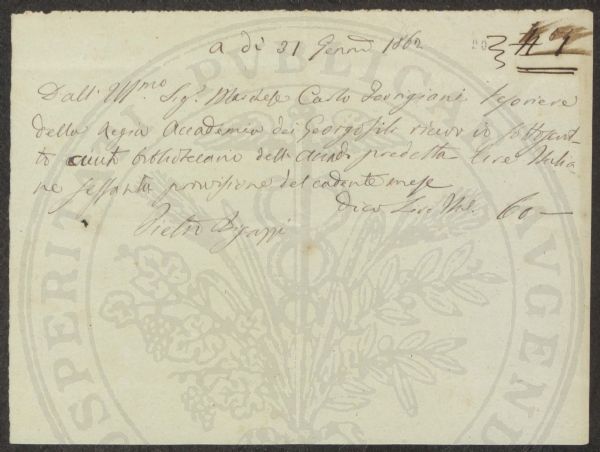 a dì 31 Genn° 1862
Dall' Ill.mo Sig.r Marchese Carlo Torrigiani Tesoriere
della Regia Accademia dei Georgofili ricevo io sottoscrit-
to aiuto bibliotecario dell' Accad. predetta Lire Italia
ne sessanta provvisione del cadente mese
Dico Lire Ital. 60 —
Pietro Bigazzi
PROSPERITATI PUBLICAE AUGENDAE